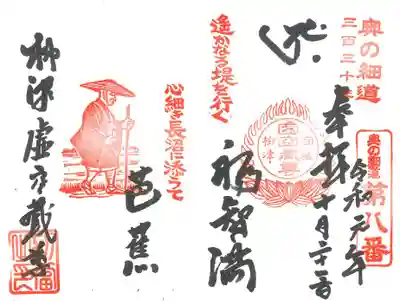 奥の細道
三百三十年
奥の細道
第八番
令和元年
奉拝
福智満
遥かなる堤を行く
心細き長沼に添うて
芭蕉
柳津虚空蔵尊